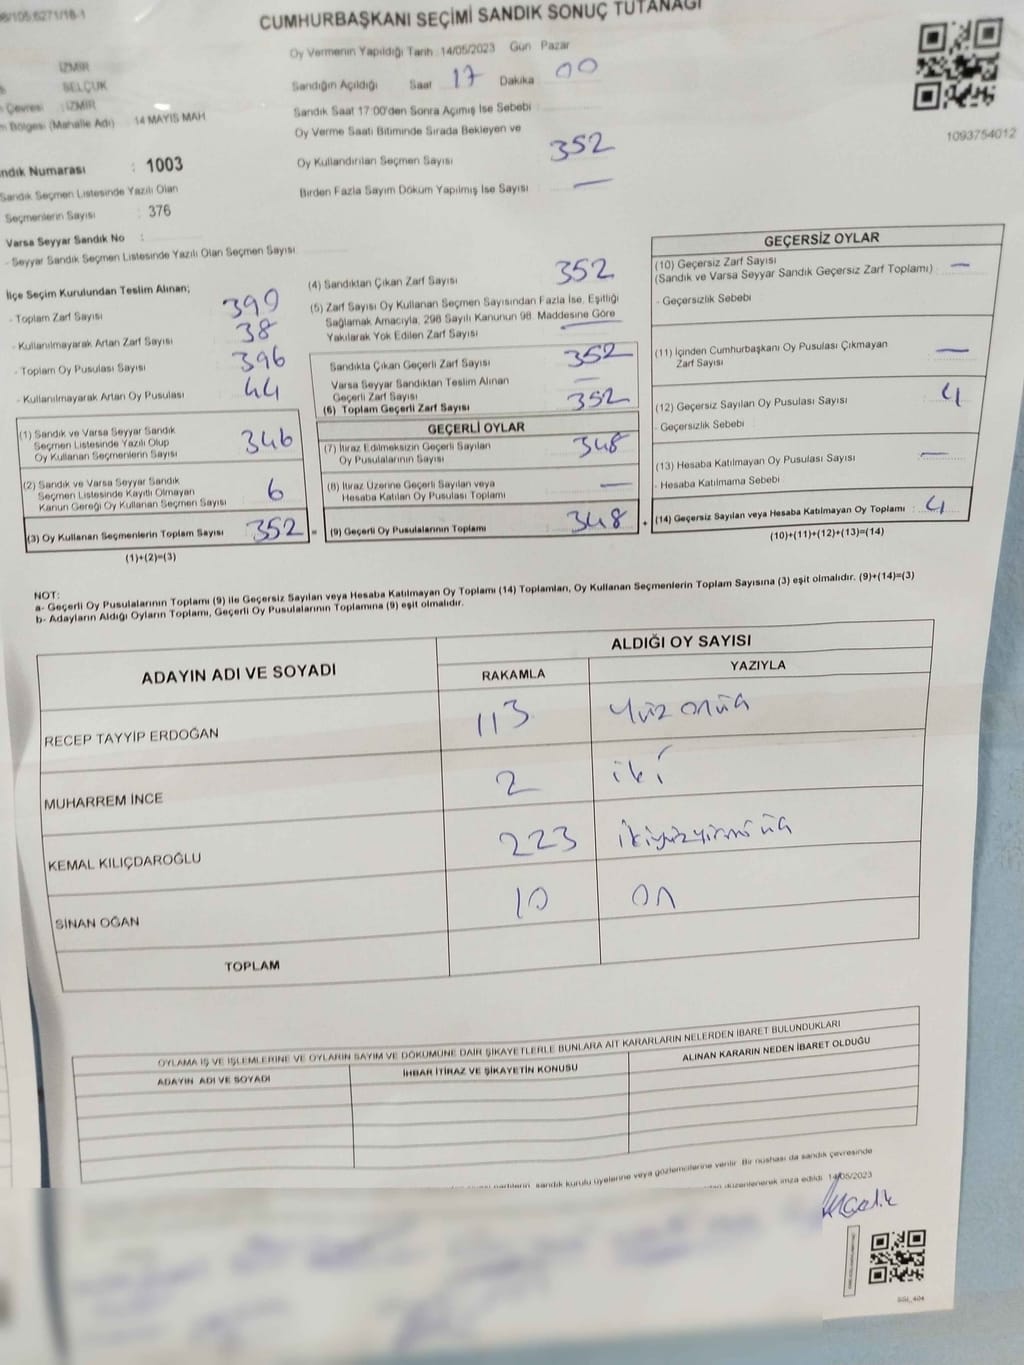 CUMHURBAŞKANI SEÇİMİ SANDIK SONUÇ TUTANAĞI
Oy Vermenin Yapıldığı Tarih :14/05/2023 Gün : Pazar
İZMİR
SELÇUK
Çevresi : İZMİR
Bölgesi (Mahalle Adı) : 14 MAYIS MAH
Sandığın Açıldığı Saat 17 Dakika 00
Sandık Saat 17:00'den Sonra Açımış İse Sebebi :
Oy Verme Saati Bitiminde Sırada Bekleyen ve
Oy Kullandırılan Seçmen Sayısı : 352
Birden Fazla Sayım Döküm Yapılmış İse Sayısı : —
1093754012
Numarası : 1003
Sandık Seçmen Listesinde Yazılı Olan
Seçmenlerin Sayısı : 376
Varsa Seyyar Sandık No :
- Seyyar Sandık Seçmen Listesinde Yazılı Olan Seçmen Sayısı :
İlçe Seçim Kurulundan Teslim Alınan;
- Toplam Zarf Sayısı : 390
- Kullanılmayarak Artan Zarf Sayısı : 38
- Toplam Oy Pusulası Sayısı : 396
- Kullanılmayarak Artan Oy Pusulası : 44
(1) Sandık ve Varsa Seyyar Sandık
Seçmen Listesinde Yazılı Olup
Oy Kullanan Seçmenlerin Sayısı : 346
(2) Sandık ve Varsa Seyyar Sandık
Seçmen Listesinde Kayıtlı Olmayan
Kanun Gereği Oy Kullanan Seçmen Sayısı : 6
(3) Oy Kullanan Seçmenlerin Toplam Sayısı : 352
(1)+(2)=(3)
(4) Sandıktan Çıkan Zarf Sayısı : 352
(5) Zarf Sayısı Oy Kullanan Seçmen Sayısından Fazla İse, Eşitliği
Sağlamak Amacıyla, 298 Sayılı Kanunun 98. Maddesine Göre
Yakılarak Yok Edilen Zarf Sayısı : —
Sandıkta Çıkan Geçerli Zarf Sayısı : 352
Varsa Seyyar Sandıktan Teslim Alınan
Geçerli Zarf Sayısı : —
(6) Toplam Geçerli Zarf Sayısı : 352
GEÇERLİ OYLAR
(7) İtiraz Edilmeksizin Geçerli Sayılan
Oy Pusulalarının Sayısı : 348
(8) İtiraz Üzerine Geçerli Sayılan veya
Hesaba Katılan Oy Pusulası Toplamı : —
= (9) Geçerli Oy Pusulalarının Toplamı : 348
GEÇERSİZ OYLAR
(10) Geçersiz Zarf Sayısı
(Sandık ve Varsa Seyyar Sandık Geçersiz Zarf Toplamı) : —
- Geçersizlik Sebebi
(11) İçinden Cumhurbaşkanı Oy Pusulası Çıkmayan
Zarf Sayısı : —
(12) Geçersiz Sayılan Oy Pusulası Sayısı : 4
- Geçersizlik Sebebi
(13) Hesaba Katılmayan Oy Pusulası Sayısı : —
- Hesaba Katılmama Sebebi
+ (14) Geçersiz Sayılan veya Hesaba Katılmayan Oy Toplamı : 4
(10)+(11)+(12)+(13)=(14)
NOT:
a- Geçerli Oy Pusulalarının Toplamı (9) ile Geçersiz Sayılan veya Hesaba Katılmayan Oy Toplamı (14) Toplamları, Oy Kullanan Seçmenlerin Toplam Sayısına (3) eşit olmalıdır. (9)+(14)=(3)
b- Adayların Aldığı Oyların Toplamı, Geçerli Oy Pusulalarının Toplamına (9) eşit olmalıdır.
ADAYIN ADI VE SOYADI
ALDIĞI OY SAYISI
RAKAMLA YAZIYLA
RECEP TAYYİP ERDOĞAN 113 Yüz onüç
MUHARREM İNCE 2 iki
KEMAL KILIÇDAROĞLU 223 ikiyüzyirmiüç
SİNAN OĞAN 10 on
TOPLAM
OYLAMA İŞ VE İŞLEMLERİNE VE OYLARIN SAYIM VE DÖKÜMÜNE DAİR ŞİKAYETLERLE BUNLARA AİT KARARLARIN NELERDEN İBARET BULUNDUKLARI
ADAYIN ADI VE SOYADI İHBAR İTİRAZ VE ŞİKAYETİN KONUSU ALINAN KARARIN NEDEN İBARET OLDUĞU
sandık kurulu üyelerine veya gözlemcilerine verilir. Bir nüshası da sandık çevresinde
düzenlenerek imza edildi. 14/05/2023